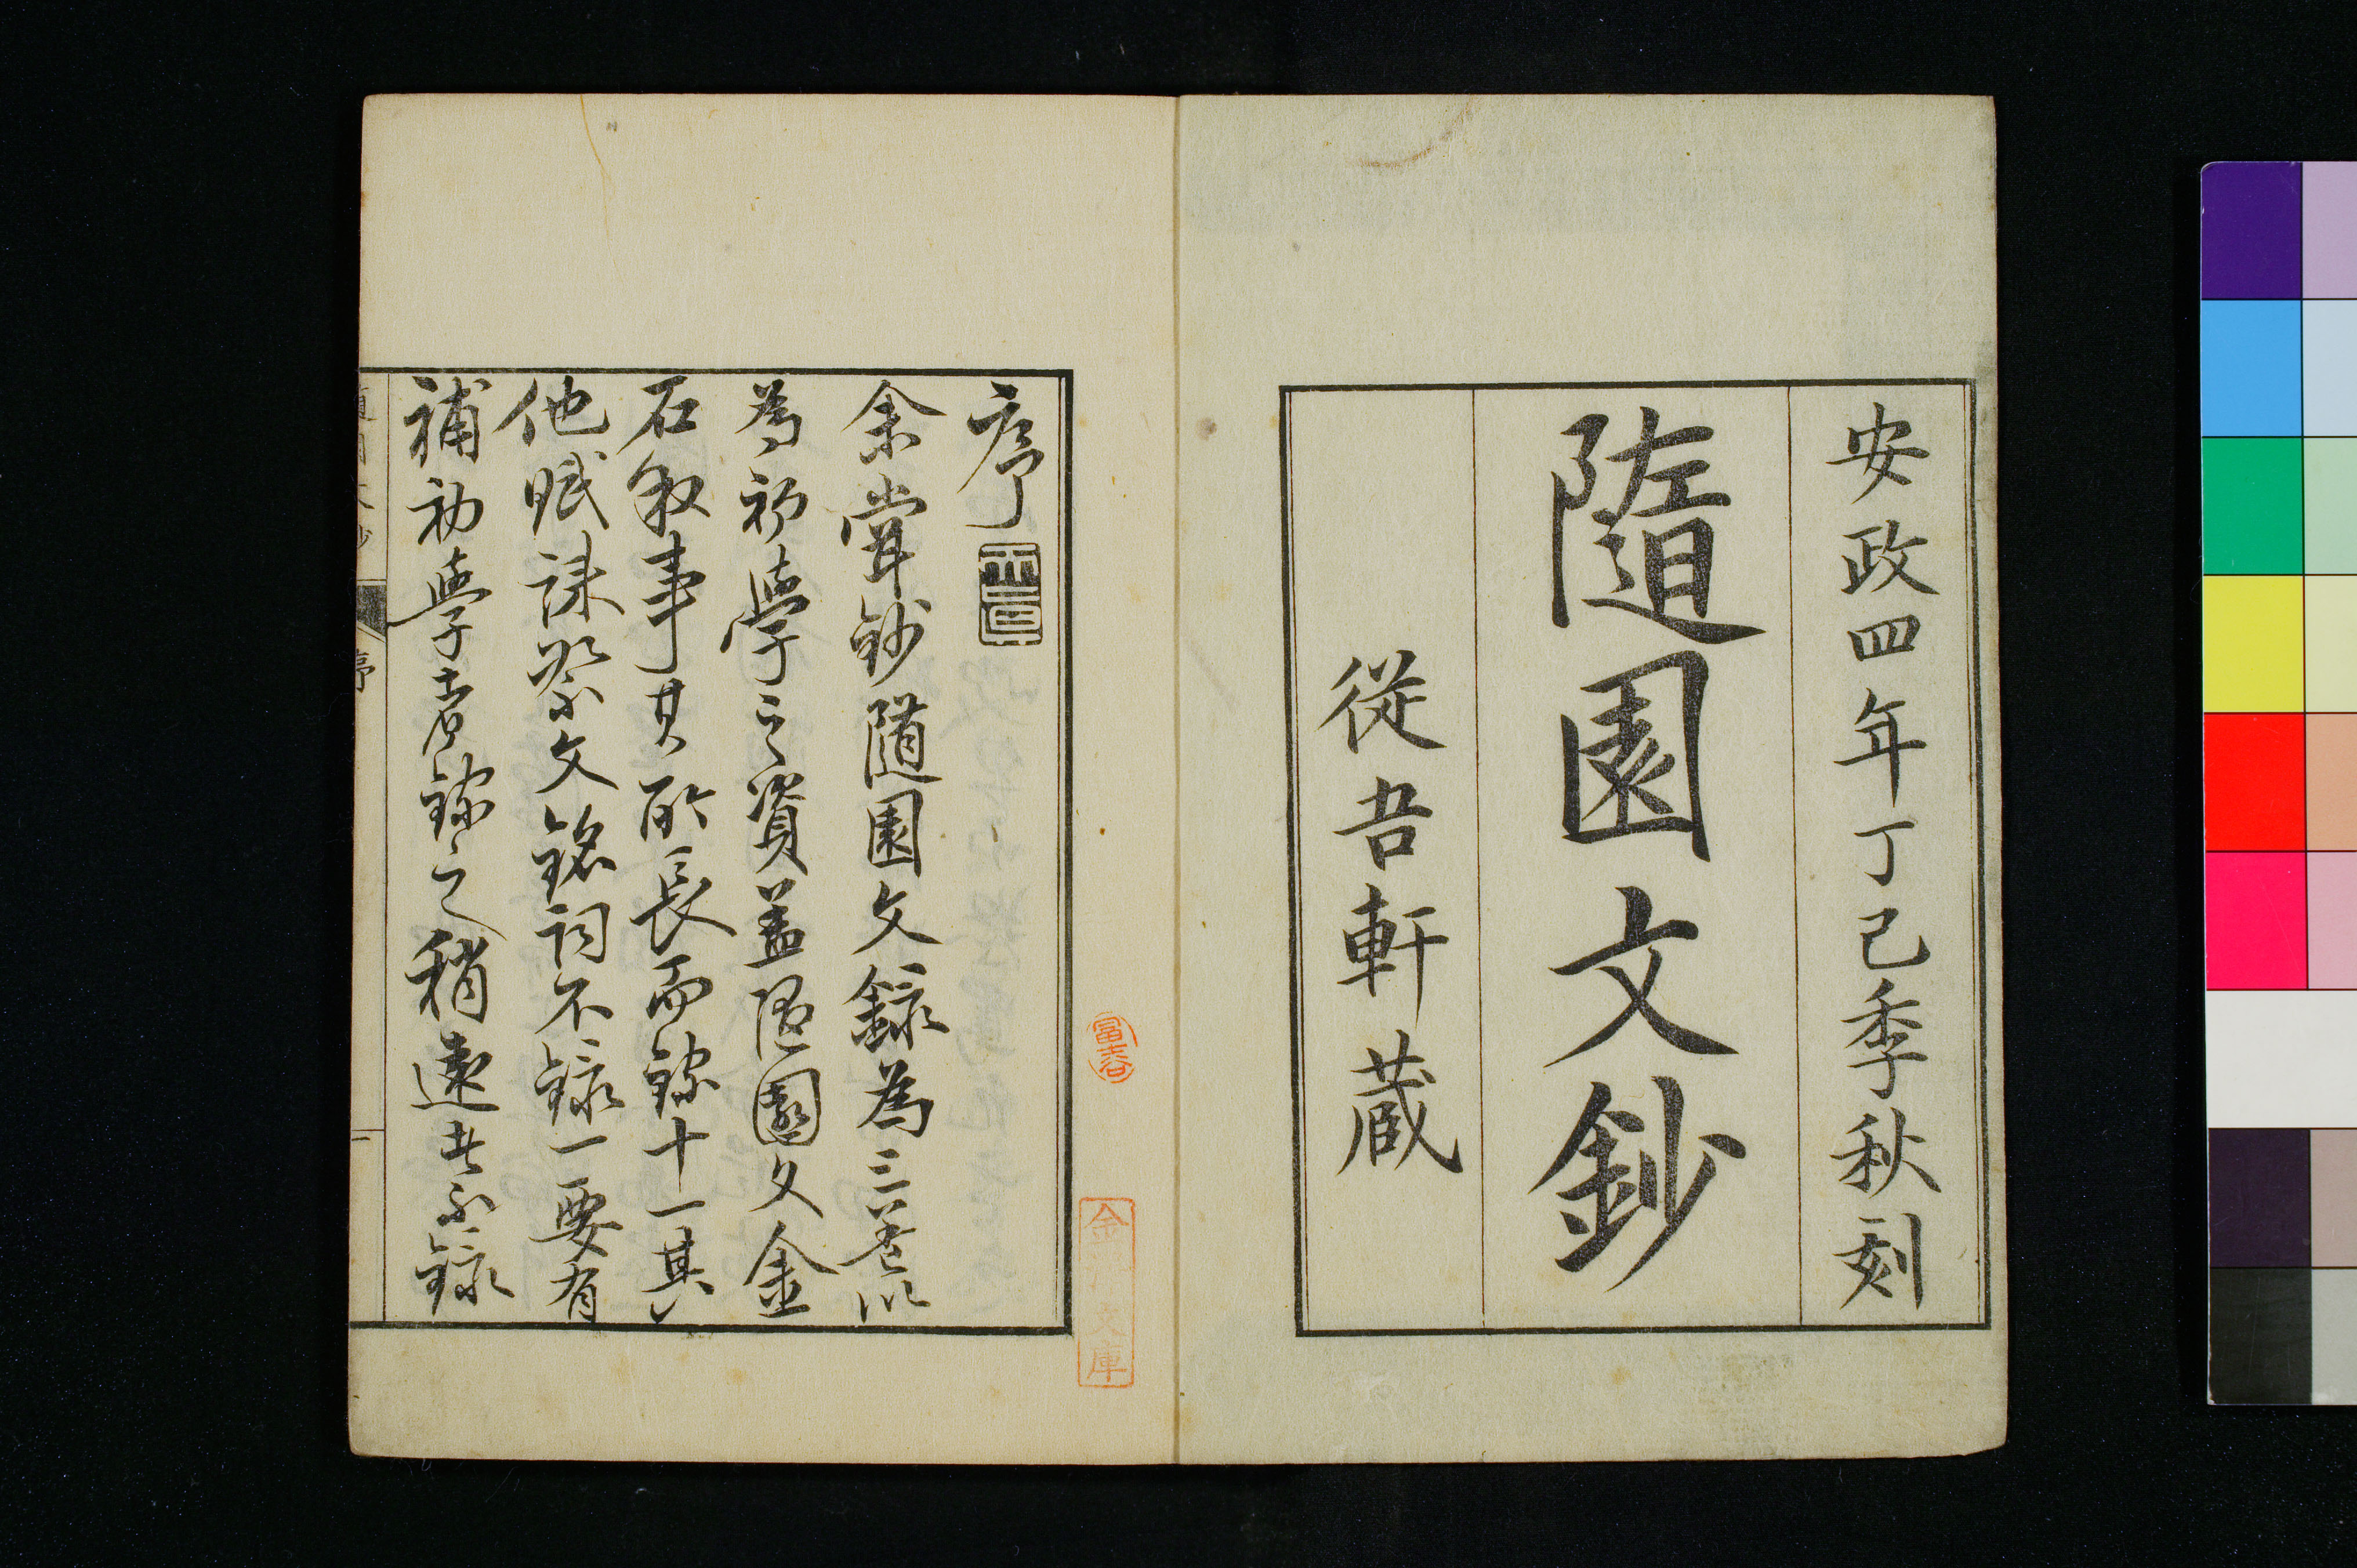 安政四年丁巳季秋刻
隨園文鈔
從吾軒蔵
序
余嘗鈔隨園文録為三卷以
為初學之資蓋隨園文金
石叙事其所長而録十一其
他賦誄祭文銘詞不録一要有
補初學者録之稍遠者不録
序
一
金 文庫